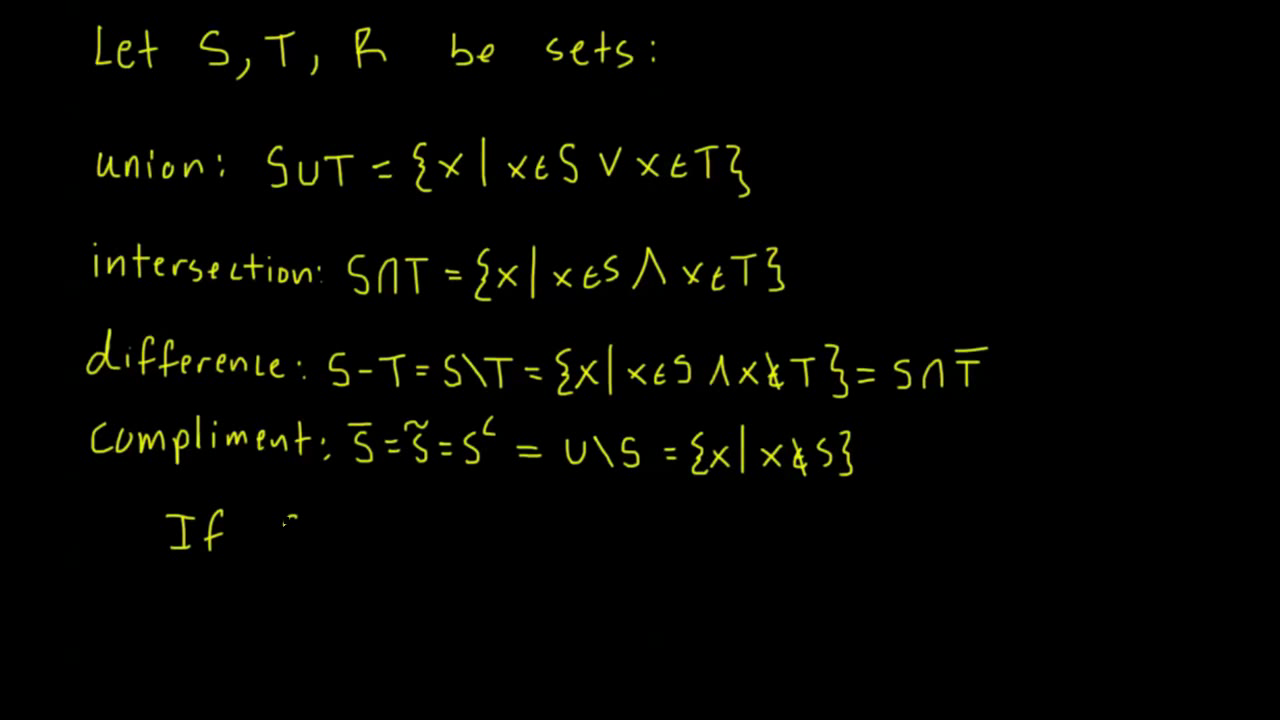 Let S, T, R be sets:
union: S∪T = {x | x∈S ∨ x∈T}
intersection: S∩T = {x | x∈S ∧ x∈T}
difference: S-T = S\T = {x | x∈S ∧ x∉T} = S∩T̅
compliment: S̅ = S̃ = Sᶜ = U\S = {x | x∉S}
If